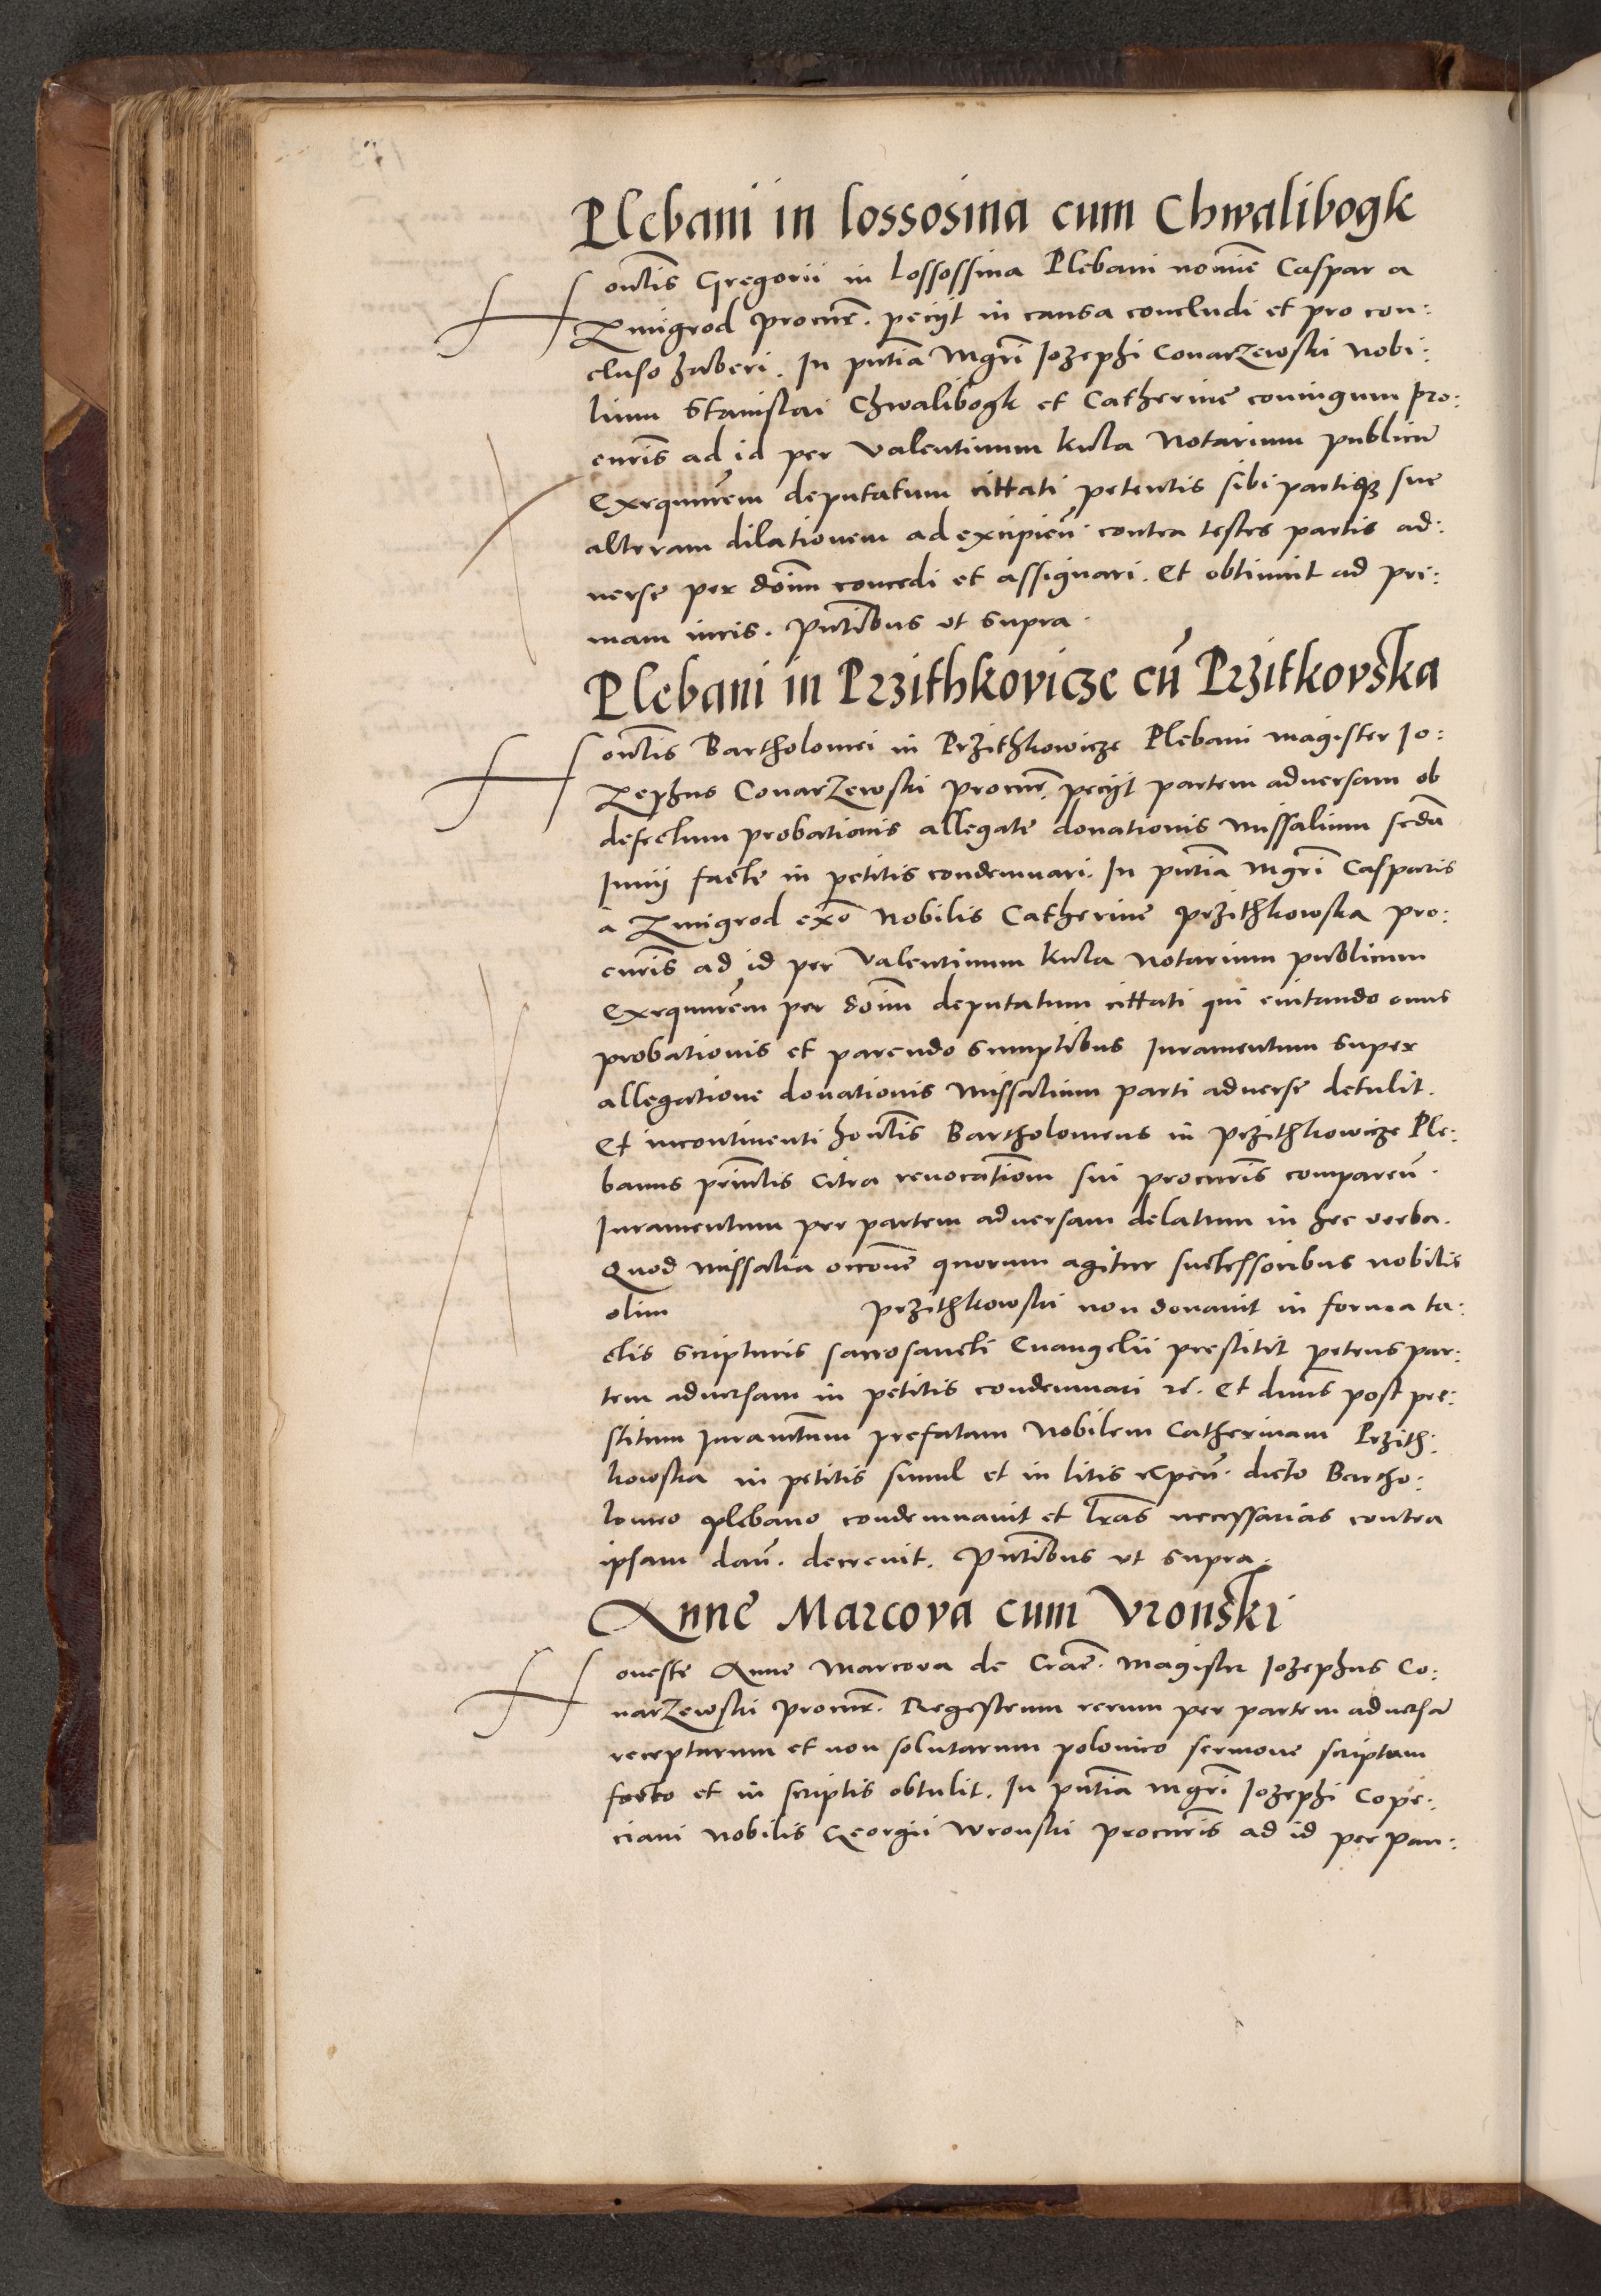 Plebani in lossosina cum Chwalibogk
Honcłis Gregorii in Lossossina Plebani nomīe Caspar a
Zmigrod procūr. peciit in causa concludi et pro con:
cluso haberi. In pñtia Mgrī Iozephi Conarzewski Nobi:
lium Stanislai Chwalibogk et Catherine coniugum pro:
curīs ad id per Valentinum Kula Notarium publicū
Exequutēm deputatum cittati petentis sibi partiqz sue
alteram dilationem ad excipieñ contra testes partis ad:
uerse per dom̄ concedi et assignari. Et obtinuit ad pri:
mam iuris. Pñtibus vt supra.
Plebani in Przithkovicze cū Przitkovska
Honłis Bartholomei in Przithkowicze Plebani magister Io:
zephus Conarzewski procūr. peciit partem adversam ob
defectum probationis allegate donationis missalium secdā
Iunij facte in petitis condemnari. In pñtia Mgrī Casparis
a Zmigrod ex° Nobilis Catherine Przithkowska pro:
curīs ad id per Valentinum Kula Notarium publicum
Exequutēm per dom̄ deputatum cittati qui euitando onus
probationis et parcendo sumptibus Iuramentum super
allegatione donationis missalium parti aduerse detulit.
Et incontinenti honłis Bartholomeus in Przithkowicze Ple:
banus prīnłis citra reuocatiom̄ sui procurīs compareñ.
Iuramentum per partem adversam delatum in hec verba.
Quod missalia occōne quorum agitur successoribus nobilis
olim Przithkowski non donauit in forma ta:
ctis scripturis sacrosancti Euangelii prestitit petens par:
tem aduersam in petitis condemnari rc. Et dnūs post pre:
stitum Iuramtum prefatam Nobilem Catherinam Przith:
kowska in petitis simul et in litis expeñ. dicto Bartho:
lomeo plebano condemnauit et lrās necessarias contra
ipsam dañ. decreuit. Pñtibus vt supra.
Anne Marcova cum Vronski
Honeste Anne Marcova de Crac̄. Magister Iozephus Co:
narzewski procūr. Regestrum rerum per partem aduersā
receptarum et non solutarum polonico sermone scriptum
facto et in scriptis obtulit. In pñtia Mgrī Iozephi Cope:
ciani Nobilis Georgii Wronski procurīs ad id per Pau: